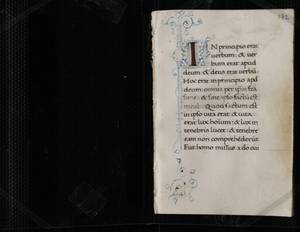 IN principio erat
uerbum: & uer
bum erat apud
deum: & deus erat uerbū.
Hoc erat in principio apd
deum: omnia per ipsū fcā
sunt: & sine ipso factū est
nihil. Quod factum est
in ipso uita erat: & uita
erat lux hoīum: & lux in
tenebris lucet: & tenebre
eam non comprehēderūt
Fuit homo missus a deo cui